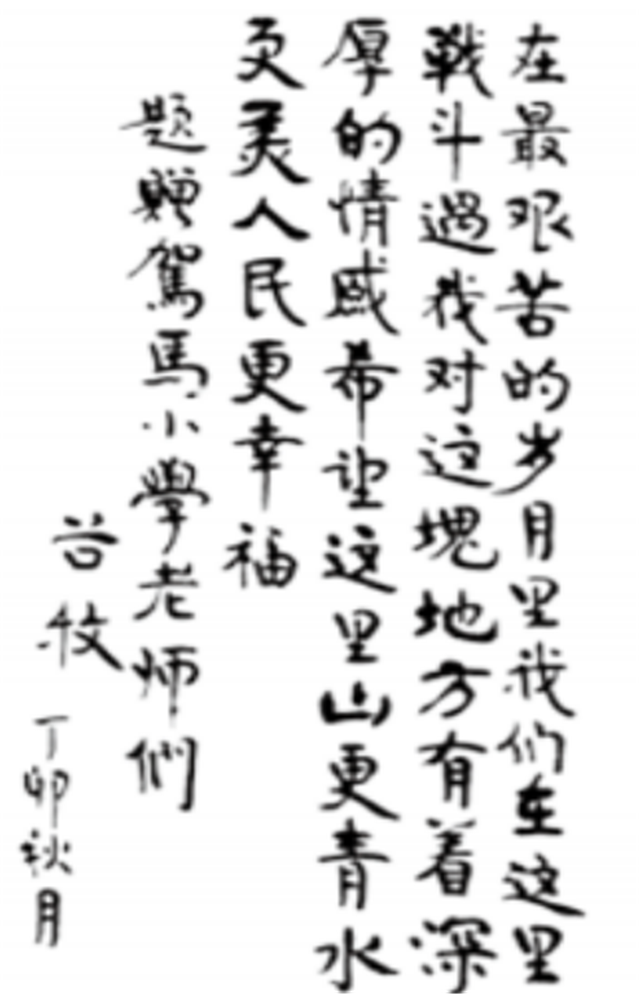 在最艰苦的岁月里我们在这里
戰斗過我对這塊地方有着深
厚的情感希望这里山更青水
更美人民更幸福
题贈駕馬小學老师們
谷牧
丁卯秋月